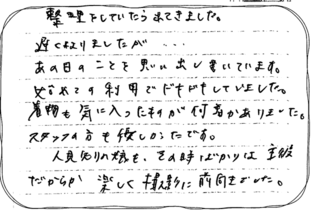 整理をしていたら出てきました。
遅くなりましたが...
あの日のことを思い出し書いています。
始めての利用でドキドキしていました。
着物も気に入ったものが何着かありました。
スタッフの方も優しかったです。
人見知りの娘も、その時ばかりは主役
だからか楽しく撮影に前向きでした。